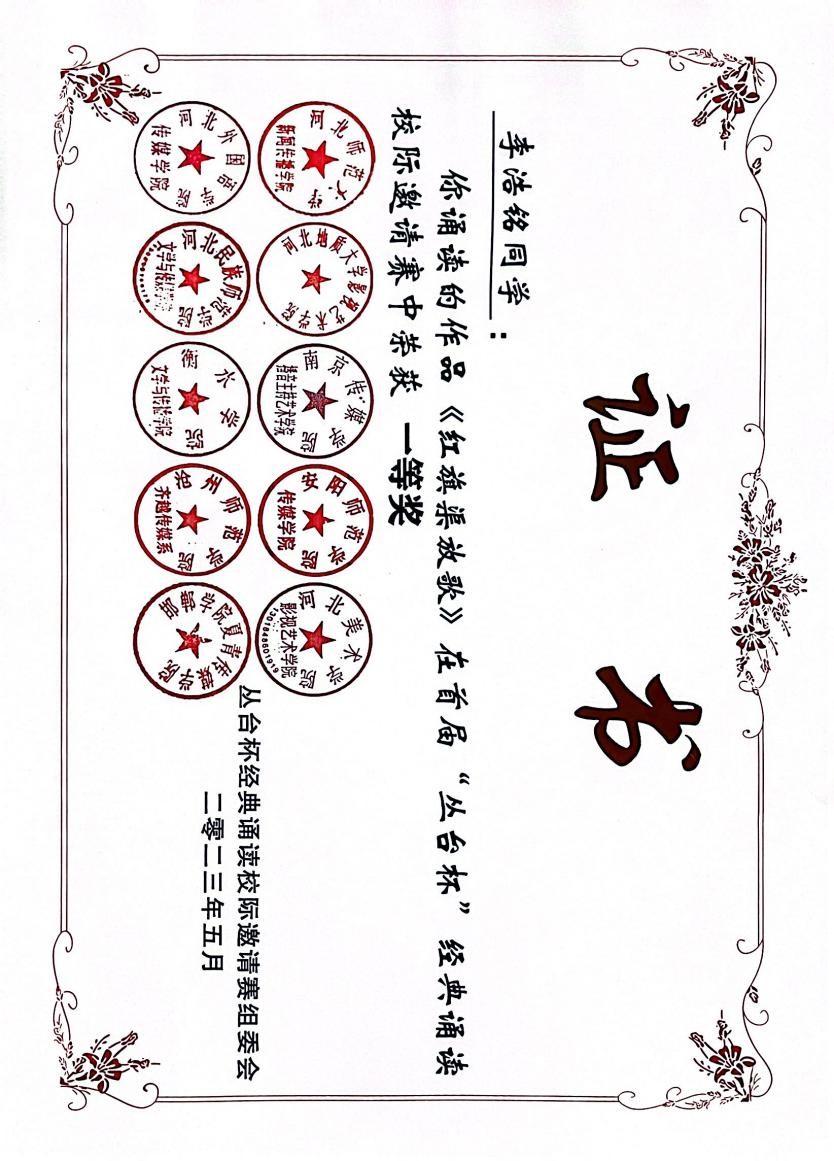 证书
李浩铭同学：
你诵读的作品《红旗渠放歌》在首届“丛台杯”经典诵读
校际邀请赛中荣获 一等奖
河北师范大学
新闻传播学院
河北地质大学影视艺术学院
南京传媒学院
播音主持艺术学院
安阳师范学院
传媒学院
河北美术学院
影视艺术学院
河北外国语学院
传媒学院
河北民族师范学院
文学与传媒学院
衡水学院
文学与传播学院
沧州师范学院
齐越传媒系
丛台杯经典诵读校际邀请赛组委会
二零二三年五月